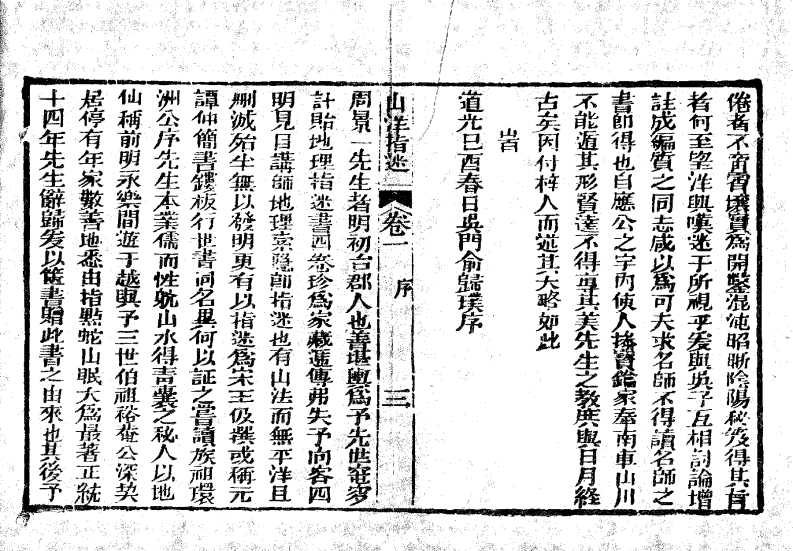 倦者不啻霄壤實爲開鑿混沌昭晰陰陽秘笈得其旨
者何至望洋興嘆迷于所視乎爰與吳子互相討論增
註成編質之同志咸以爲可夫求名師不得讀名師之
書師得也自應公之字內使人擕寶鑑家奉南車山川
不能遁其形賢達不得專其美先生之教庶與日月經
古矣因付梓人而道其大略如此
旹
道光己酉春日吳門俞歸璞序
山洋指迷 卷一 序 三
周景一先生者明初台郡人也善堪輿爲予先世窀穸
計貽地理指迷書四卷珍爲家藏遞傳弗失予向客四
明見目講師地理索隱師指迷也有山法而無平洋且
刪減殆半無以發明更有以指迷爲宋王伋撰或稱元
譚仲簡書鏤板行世書同名異何以証之嘗讀族祖環
洲公序先生本業儒而性躭山水得青囊之秘人以地
仙稱前明永樂間遊于越與予三世伯祖裕菴公深契
居停有年家數善地悉由指點蛇山眠犬爲最著正統
十四年先生辭歸爰以篋書贈此書之由來也其後予